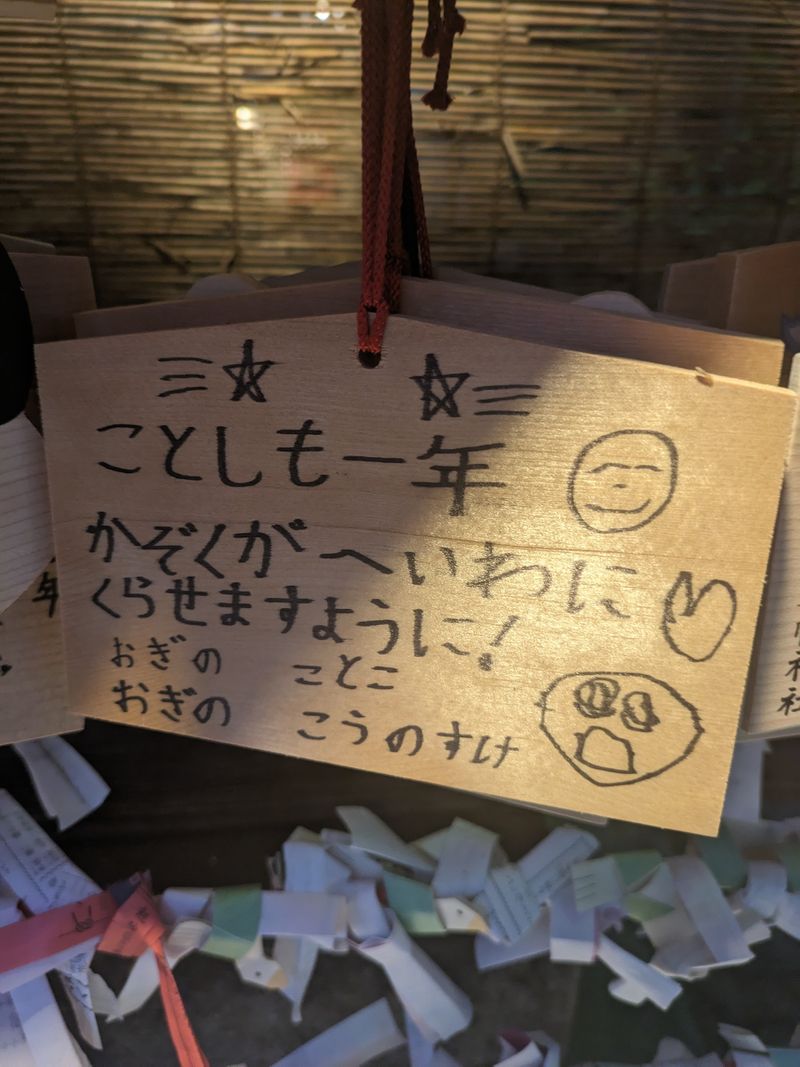 ことしも一年
かぞくが へいわに
くらせますように!
おぎの ことこ
おぎの こうのすけ
年
神社